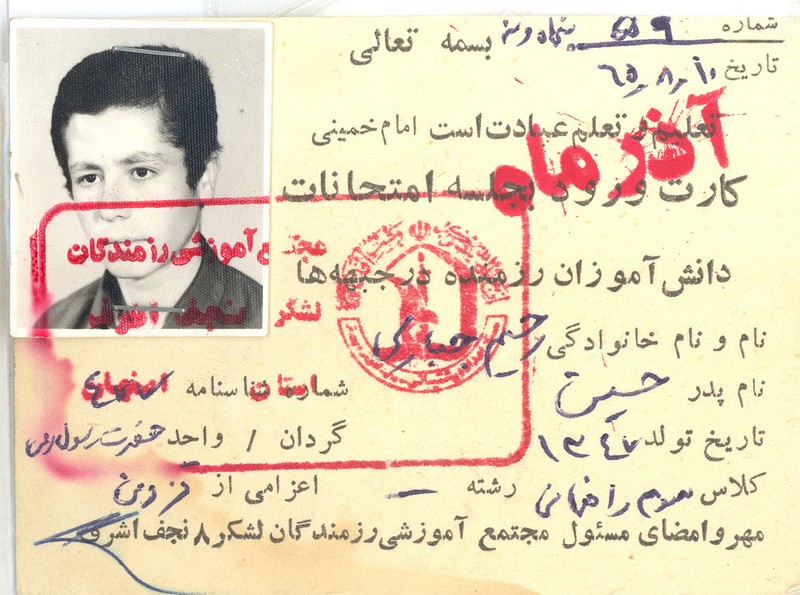 شماره ۵۵۹ پنجاه و نه
بسمه تعالی
تاریخ ۱۰ـ۸ـ۶۵
تعلیم و تعلم عبادت است امام خمینی
آذر ماه
کارت ورود بجلسه امتحانات
دانش‌آموزان رزمنده درجبهه‌ها
مجتمع آموزشی رزمندگان
لشکر نجف اشرف
استان اصفهان
نام و نام خانوادگی رحیم جباری
نام پدر حسین شماره شناسنامه
تاریخ تولد ۱۳۴۷ گردان / واحد حضرت رسول
کلاس سوم راهنمائی رشته — اعزامی از قزوین
مهر و امضای مسئول مجتمع آموزشی رزمندگان لشکر ۸ نجف اشرف